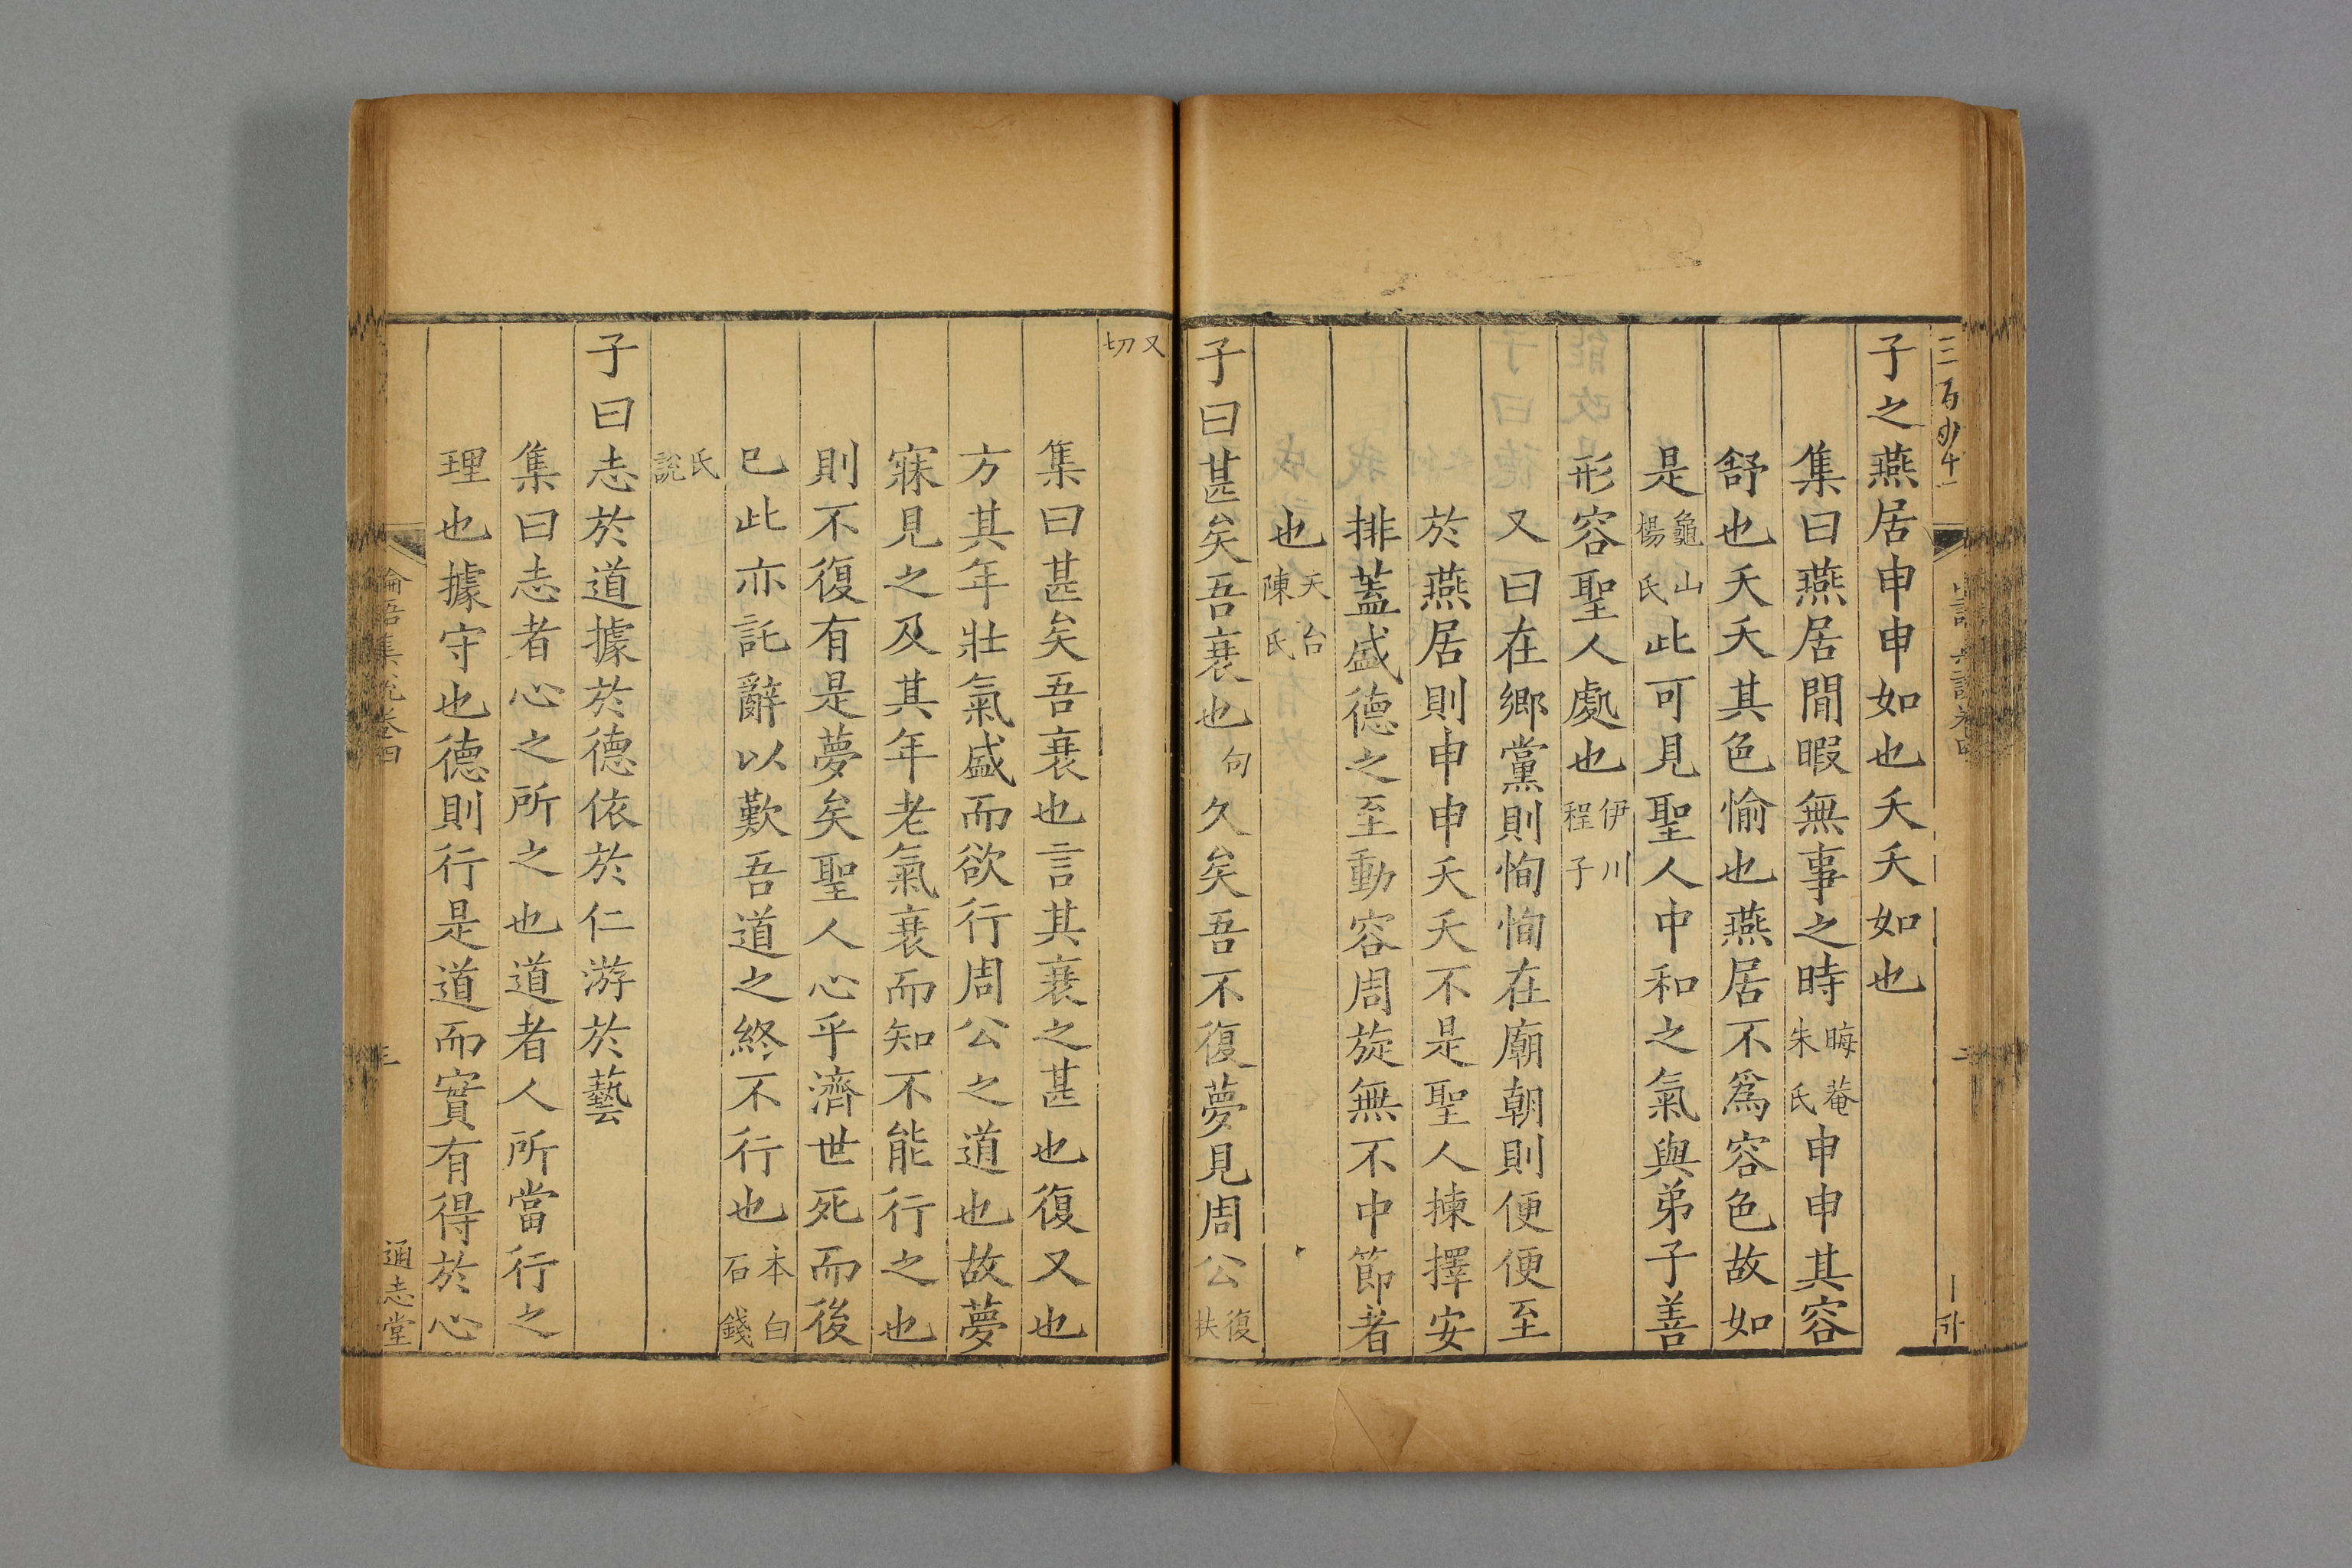 子之燕居申申如也夭夭如也
集曰燕居閒暇無事之時晦菴朱氏申申其容
舒也夭夭其色愉也燕居不爲容色故如
是龜山楊氏此可見聖人中和之氣與弟子善
形容聖人處也伊川程子
又曰在鄉黨則恂恂在廟朝則便便至
於燕居則申申夭夭不是聖人揀擇安
排蓋盛德之至動容周旋無不中節者
也天台陳氏
子曰甚矣吾衰也句久矣吾不復夢見周公復扶
又切
集曰甚矣吾衰也言其衰之甚也復又也
方其年壯氣盛而欲行周公之道也故夢
寐見之及其年老氣衰而知不能行之也
則不復有是夢矣聖人心乎濟世死而後
已此亦託辭以歎吾道之終不行也本白石錢
氏說
子曰志於道據於德依於仁游於藝
集曰志者心之所之也道者人所當行之
理也據守也德則行是道而實有得於心
論語集說卷四
三
通志堂